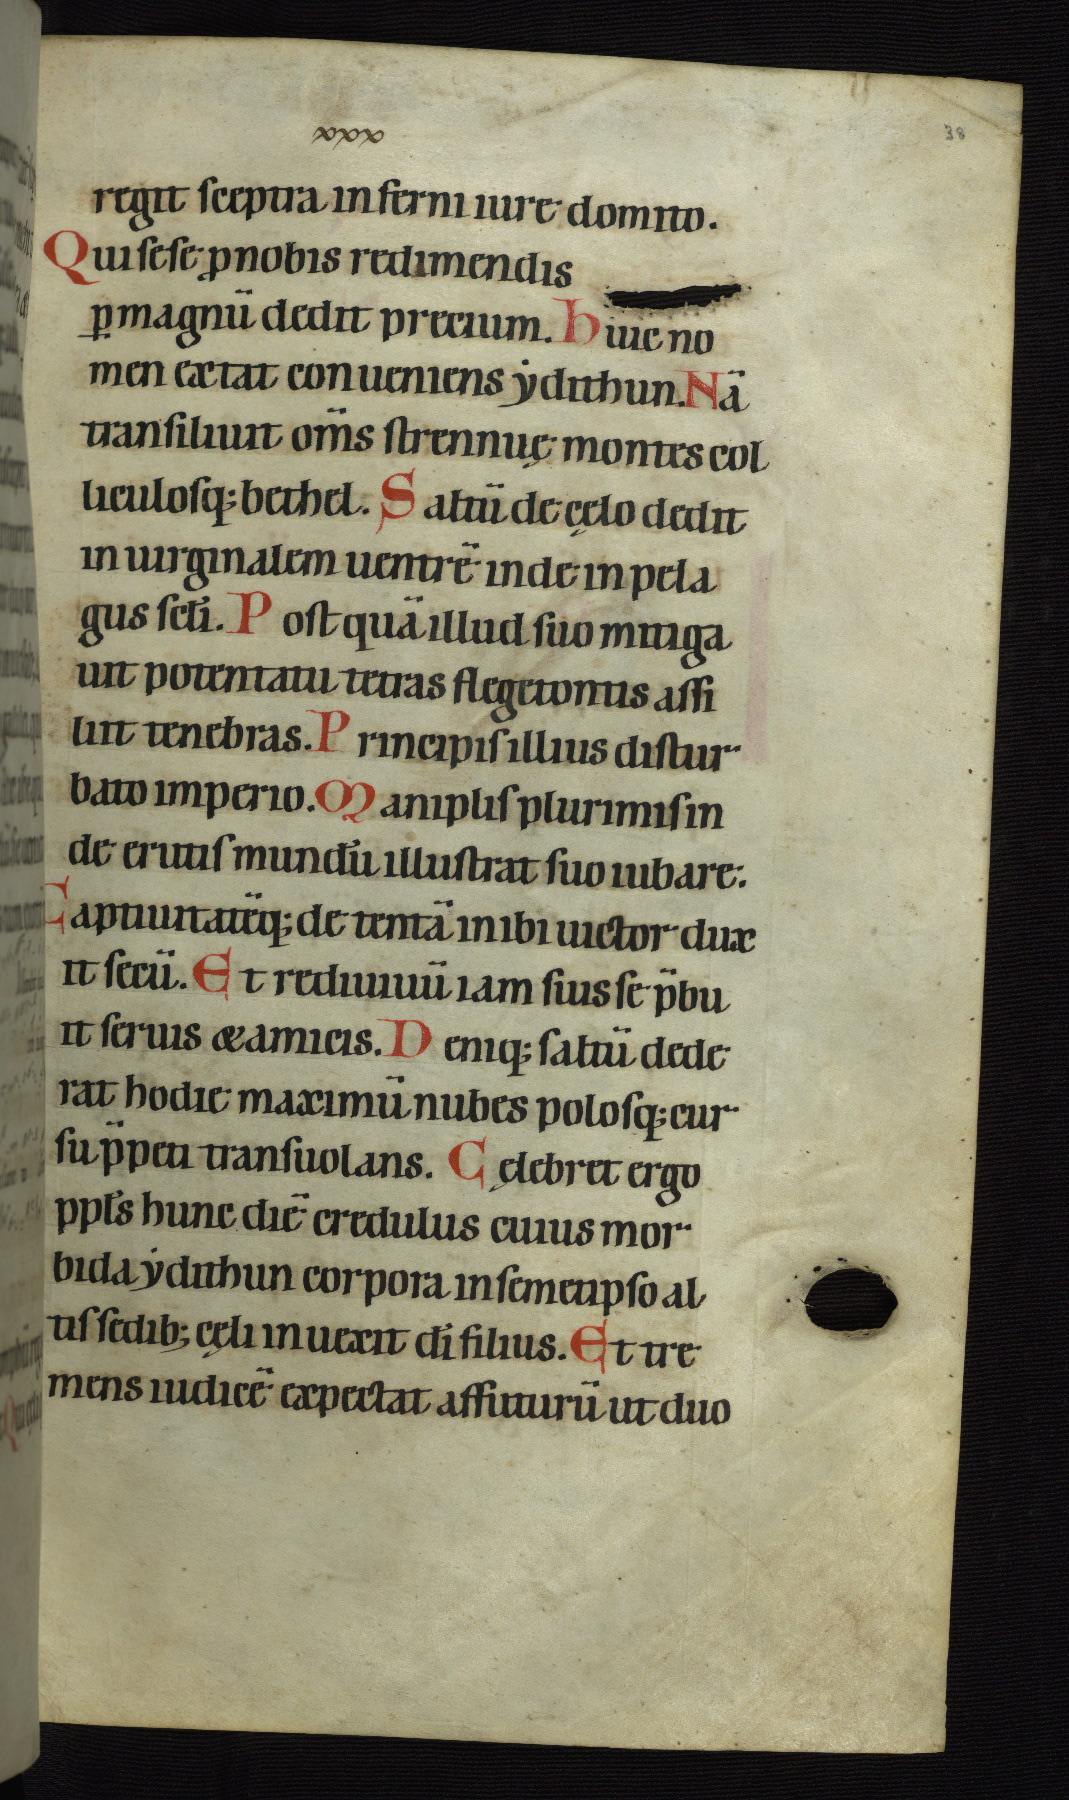 xxx
38
regit sceptra inferni iure domito.
Qui sese ꝓ nobis redimendis
ꝑmagnū dedit precium. Huic no
men extat conueniens ẏdithun. Nā
transiliuit om̄s strennuę montes col
liculosq; bethel. Saltū de cęlo dedit
in uirginalem uentrē inde in pela
gus scl̄i. Postquā illud suo mitiga
uit potentatu tetras flegetontis assi
liit tenebras. Principis illius distur
bato imperio. Maniplis plurimis in
de erutis mundū illustrat suo iubare.
Captiuitatēq; detentā inibi uictor dux
it secū. Et rediuiuū iam suis se p̄bu
it seruis & amicis. Deniq; saltū dede
rat hodie maximū nubes polosq; cur
su p̄peti transuolans. Cęlebret ergo
ppl̄s hunc diē credulus cuius mor
bida ẏdithun corpora in semetipso al
tis sedib; cęli inuexit dī filius. Et tre
mens iudicē expectat affuturū ut duo